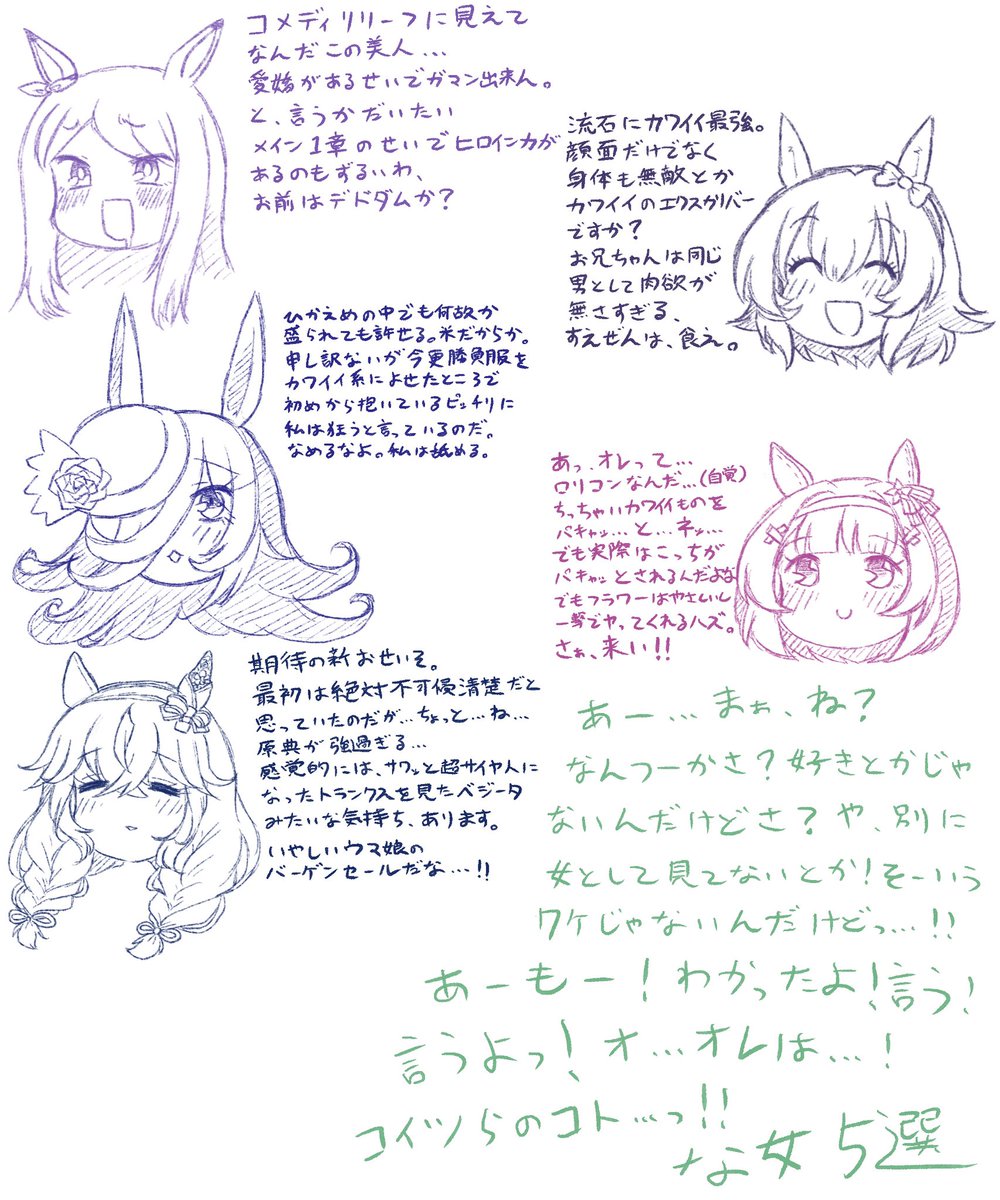 コメディリリーフに見えて
なんだこの美人...
愛嬌があるせいでガマン出来ん。
と、言うかだいたい
メイン1章のせいでヒロイン力が
あるのもずるいわ、
お前はデドダムか?
流石にカワイイ最強。
顔面だけでなく
身体も無敵とか
カワイイのエクスカリバー
ですか?
お兄ちゃんは同じ
男として肉欲が
無さすぎる、
すえぜんは、食え。
ひかえめの中でも何故か
盛られても許せる。米だからか。
申し訳ないが今更勝負服を
カワイイ系によせたところで
初めから抱いているピッチリに
私は狂うと言っているのだ。
なめるなよ。私は舐める。
あっ、オレって...
ロリコンなんだ...(自覚)
ちっちゃいカワイイものを
バキャッ...と...ネッ...
でも実際はこっちが
バキャッとされるんだよな
でもフラワーはやさしいし
一撃でやってくれるハズ。
さぁ、来い!!
期待の新おせいそ。
最初は絶対不可侵清楚だと
思っていたのだが...ちょっと...ね...
原典が強過ぎる...
感覚的には、サワッと超サイヤ人に
なったトランクスを見たベジータ
みたいな気持ち、あります。
いやしいウマ娘の
バーゲンセールだな...!!
あー...まぁ、ね?
なんつーかさ?好きとかじゃ
ないんだけどさ?や、別に
女として見てないとか!そーいう
ワケじゃないんだけどっ...!!
あーもー!わかったよ!言う!
言うよっ!オ...オレは...!
コイツらのコト...っ!!
な女5選